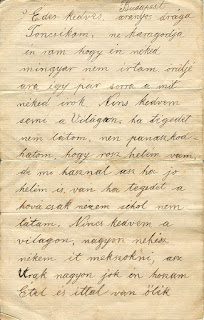 Budapest
Édes kedves, aranyos drága
Toncsikám, ne haragodja
én rám hogy én neked
mingyar nem irtam
ara egy pár sorra a mit
neked irok. Nincs kedvem
semi a Világon, ha tégedet
nem látom, nem panaszkod
hatom, hogy rosz helem vam,
de mi használ az ha jo
helem is van ha tégedet a
hova csak nezem sehol nem
látam. Nincs kedvem a
világon, nagyon nehéz
nekem it mekszokni, az
Urak nagyon jók én hozzám
Étel és ittal van ölik